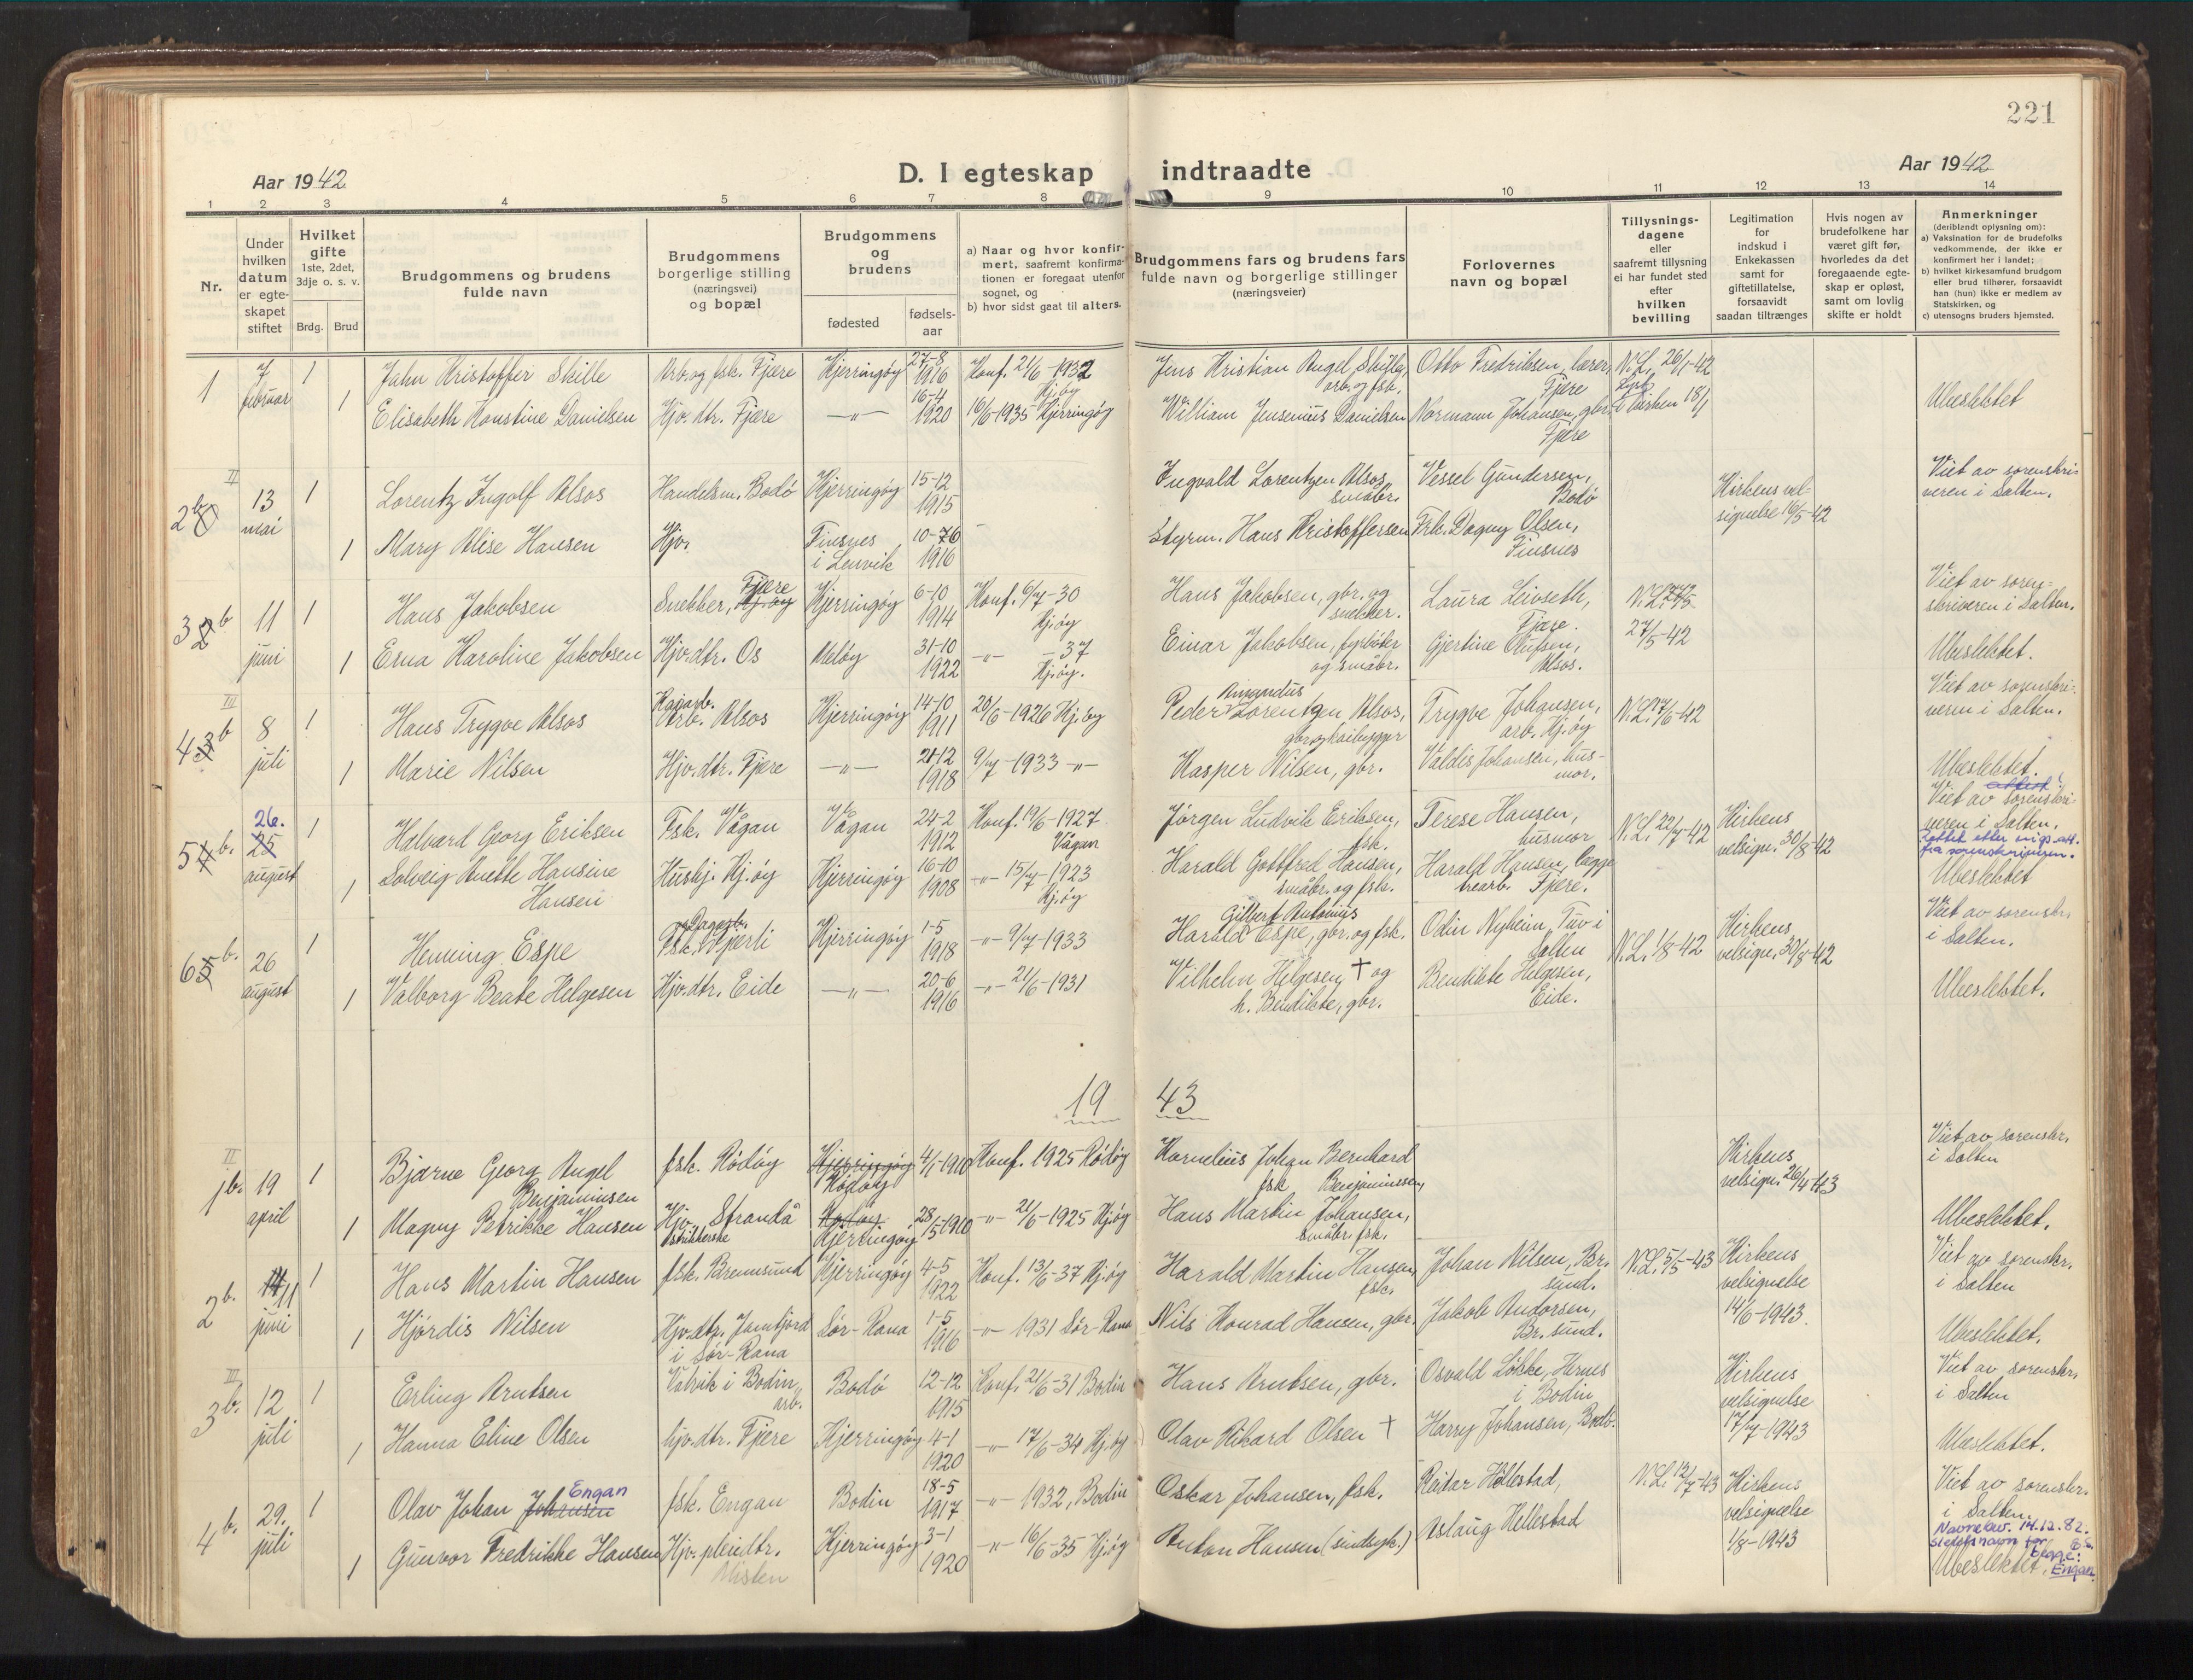 221
Aar 1942
D. I egteskap indtraadte
Aar 1942
1 2 3 4 5 6 7 8 9 10 11 12 13 14
Nr.
Under hvilken datum er egteskapet stiftet
Hvilket gifte 1ste, 2det, 3dje o. s. v.
Brdg. Brud
Brudgommens og brudens fulde navn
Brudgommens borgerlige stilling (næringsvei) og bopæl
Brudgommens og brudens
fødested
fødsels-aar
a) Naar og hvor konfirmert, saafremt konfirmationen er foregaat utenfor sognet, og
b) hvor sidst gaat til alters.
Brudgommens fars og brudens fars fulde navn og borgerlige stillinger (næringsveier)
Forlovernes navn og bopæl
Tillysningsdagene eller saafremt tillysning ei har fundet sted efter hvilken bevilling
Legitimation for indskud i Enkekassen samt for giftetillatelse, forsaavidt saadan tiltrænges
Hvis nogen av brudefolkene har været gift før, hvorledes da det foregaaende egteskap er opløst, samt om lovlig skifte er holdt
Anmerkninger (deriblandt oplysning om):
a) Vaksination for de brudefolks vedkommende, der ikke er konfirmert her i landet;
b) hvilket kirkesamfund brudgom eller brud tilhører, forsaavidt han (hun) ikke er medlem av Statskirken, og
c) utensogns bruders hjemsted.
1 7 februar 1 Jahn Kristoffer Skille Arb. og fsk. Fjære Kjerringøy 27-8 1916 Konf. 21/6-1932 Kj.øy Jens Kristian Angel Skille, arb. og fsk. Otto Fredriksen, lærer, Fjære N.L. 26/1-42
1 Elisabeth Konstine Danielsen Hjv. dtr. Fjære —"— 16-4 1920 16/6-1935 Kjerringøy William Jensenius Danielsen Normann Johansen, gbr. Fjære i kirken 18/1 Ubeslektet
II
2 b 13 mai 1 Lorentz Ingolf Alsos Handelsm. Bodø Kjerringøy 15-12 1915 Ingvald Lorentzen Alsos småbr. Vessel Gundersen, Bodø Kirkens velsignelse 16/5-42 Viet av sorenskriveren i Salten.
1 Mary Alise Hansen Hjv. Finsnes i Lenvik 1916 Styrm. Hans Kristoffersen Frk. Dagny Olsen, Finsnes
3 b 11 juni 1 Hans Jakobsen Snekker, Fjære Kjerringøy 6-10 1914 Konf. 6/7-30 Kj.øy Hans Jakobsen, gbr. og snekker. Laura Leivseth, Fjære. N.L. 27/5-42 Viet av sorenskriveren i Salten.
1 Erna Karoline Jakobsen Hjv. dtr. Os Meløy 31-10 1922 —"— -37 Kj.øy. Einar Jakobsen, fyrbøter og småbr. Gjertine Olufsen, Alsos. Ubeslektet.
III
4 b 8 juli 1 Hans Trygve Alsos Kaiarb. Alsos Kjerringøy 14-10 1911 20/6-1926 Kj.øy Peder Amandus Lorentzen Alsos, gbr. og kaibygger Trygve Johansen, arb. Kj.øy N.L. 17/6-42 Viet av sorenskriveren i Salten.
1 Marie Nilsen Hjv. dtr. Fjære —"— 21-12 1918 9/7-1933 —"— Kasper Nilsen, gbr. Valdis Johansen, husmor. Ubeslektet.
5 b. 26. 25 august 1 Halvard Georg Eriksen Fsk. Vågan Vågan 24-2 1912 Konf. 19/6-1927 Vågan Jørgen Ludvik Eriksen, fsk. Terese Hansen, husmor N.L. 22/7-42 Kirkens velsign. 30/8-42 Viet av sorenskriveren i Salten.
Rettet etter vigs.att. fra sorenskriveren.
1 Solveig Anette Hansine Hansen Hushj. Kj.øy Kjerringøy 16-10 1908 —"— 15/7-1923 Kj.øy Harald Gottfred Hansen, småbr. og fsk. Harald Hansen, lægge trearb. Fjære. Ubeslektet
6 b. 26 august 1 Henning Espe Kjerringøy 1-5 1918 —"— 9/7-1933 Harald Gilbert Antonius Espe, gbr. og fsk. Odin Nyheim, Tuv i Salten N.L. 1/8-42 Kirkens velsign. 30/8-42 Viet av sorenskr. i Salten.
1 Valborg Beate Helgesen Hjv. dtr. Eide —"— 20-6 1916 —"— 21/6-1931 Vilhelm Helgesen † og h. Bendikte, gbr. Bendikte Helgesen, Eide. Ubeslektet.
19 43
II
1 b. 19 april 1 Bjarne Georg Angel Benjaminsen fsk. Rødøy Kjerringøy Rødøy 4/1-1910 Konf. 1925 Rødøy Kornelius Johan Bernhard Benjaminssen, fsk Kirkens velsign. 26/4-43 Viet av sorenskr. i Salten
1 Magny Petrikke Hansen Hjv. Strandå Kjerringøy 28/5-1910 —"— 21/6-1925 Kj.øy Hans Martin Johansen, småbr. fsk. Ubeslektet.
2 b. 11 juni 1 Hans Martin Hansen fsk. Brennsund Kjerringøy 4-5 1922 Konf. 13/6-37 Kj.øy Harald Martin Hansen, fsk. Johan Nilsen, Br.sund. N.L. 5/5-43 Kirkens velsignelse 14/6-1943. Viet av sorenskr. i Salten
1 Hjørdis Nilsen Hjv. dtr. Jamtfjord i Sør-Rana Sør-Rana 1-5 1916 —"— 1931 Sør-Rana Nils Konrad Hansen, gbr. Jakob Andorsen, Br.sund. Ubeslektet.
III
3 b. 12 juli 1 Erling Arntsen Valvik i Bodin, arb. Bodø 12-12 1915 Konf. 21/6-31 Bodin Hans Arntsen, gbr. Osvald Løkke, Hernes i Bodin Kirkens velsignelse 17/7-1943 Viet av sorenskr. i Salten
1 Hanna Eline Olsen hjv. dtr. Fjære Kjerringøy 4-1 1920 —"— 17/6-34 Kj.øy Olav Rikard Olsen † Harry Johansen, Bodø. Ubeslektet.
4 b. 29. juli 1 Olav Johan Johansen Engan fsk. Engan Bodin 18-5 1917 —"— 1932, Bodin Oskar Johansen, fsk. Reidar Hellestad, N.L. 12/7-43 Kirkens velsignelse 1/8-1943 Viet av sorenskr. i Salten.
Navnebev. 14.12.82. slektsnavn for begge: Engan
1 Gunvor Fredrikke Hansen Hjv. pleiedtr. Misten Kjerringøy 3-1 1920 —"— 16/6-35 Kj.øy Anton Hansen (sindsyk.) Aslaug Hellestad Ubeslektet.